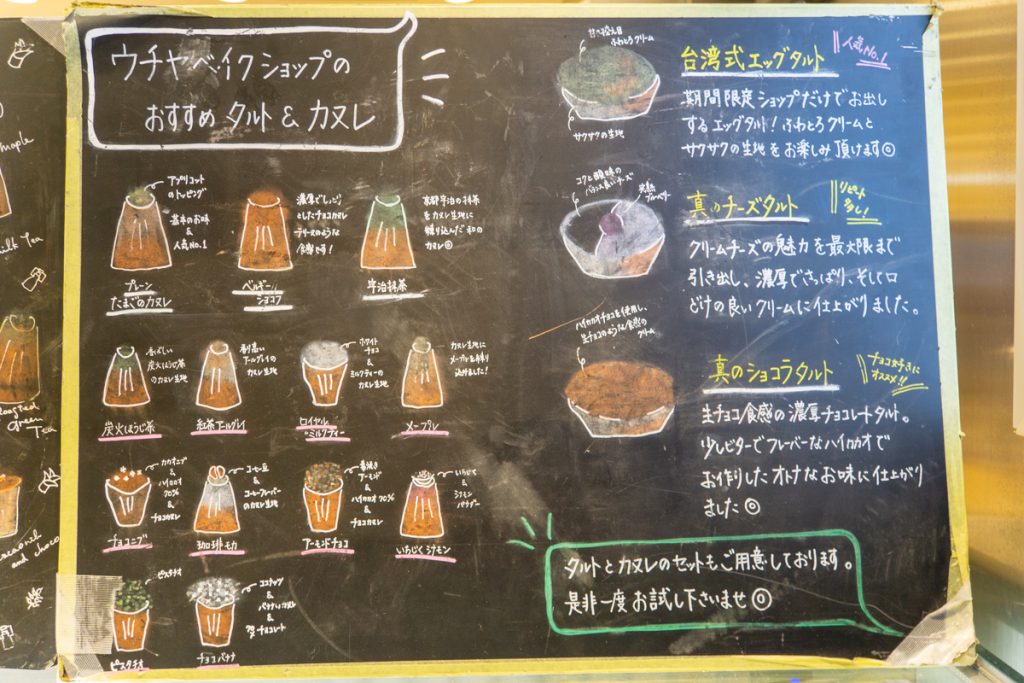 ウチヤベイクショップの
おすすめ タルト & カヌレ
アプリコット
のトッピング
基本のお味
&
人気No.1
プレーン
たまごのカヌレ
濃厚でしっとり
としたチョコカヌレ
テリーヌのような
食感です!
ベルギー
ショコラ
京都宇治の抹茶
をカヌレ生地に
練り込んだ和の
カヌレ◎
宇治抹茶
香ばしい
炭火ほうじ茶
のカヌレ生地
炭火ほうじ茶
香り高い
アールグレイの
カヌレ生地
紅茶アールグレイ
ホワイト
チョコ
&
ミルクティーの
カヌレ生地
ロイヤル
・ミルクティー
カヌレ生地に
メープルを
込みました!
メープル
カカオニブ
&
ハイカカオ
70%
&
チョコカヌレ
チョコニブ
コーヒー豆
&
コーヒーフレーバー
のカヌレ生地
珈琲モカ
素焼き
アーモンド
&
ハイカカオ70%
&
チョコカヌレ
アーモンドチョコ
いちじく
&
シナモン
パウダー
いちじくシナモン
ピスタチオ
ピスタチオ
ココナッツ
&
バナナカヌレ
&
チョコレート
チョコバナナ
甘さ控え目
ふわとろクリーム
サクサクの生地
台湾式エッグタルト
人気No.1
期間限定ショップだけでお出し
するエッグタルト!ふわとろクリームと
サクサクの生地をお楽しみ頂けます◎
コクと酸味の
バランス良いチーズ
完熟
ブルーベリー
真のチーズタルト
リピート
多し!
クリームチーズの魅力を最大限まで
引き出し、濃厚でさっぱり、そして口
どけの良いクリームに仕上がりました。
ハイカカオチョコを使用し、
生チョコのような食感の
クリーム
真のショコラタルト
チョコ好きに
オススメ!!
生チョコ食感の濃厚チョコレートタルト。
少しビターでフレーバーなハイカカオで
お作りしたオトナなお味に仕上がり
ました◎
タルトとカヌレのセットもご用意しております。
是非一度お試し下さいませ◎
maple
Milk Tea
Roasted
Green
Tea
and choco